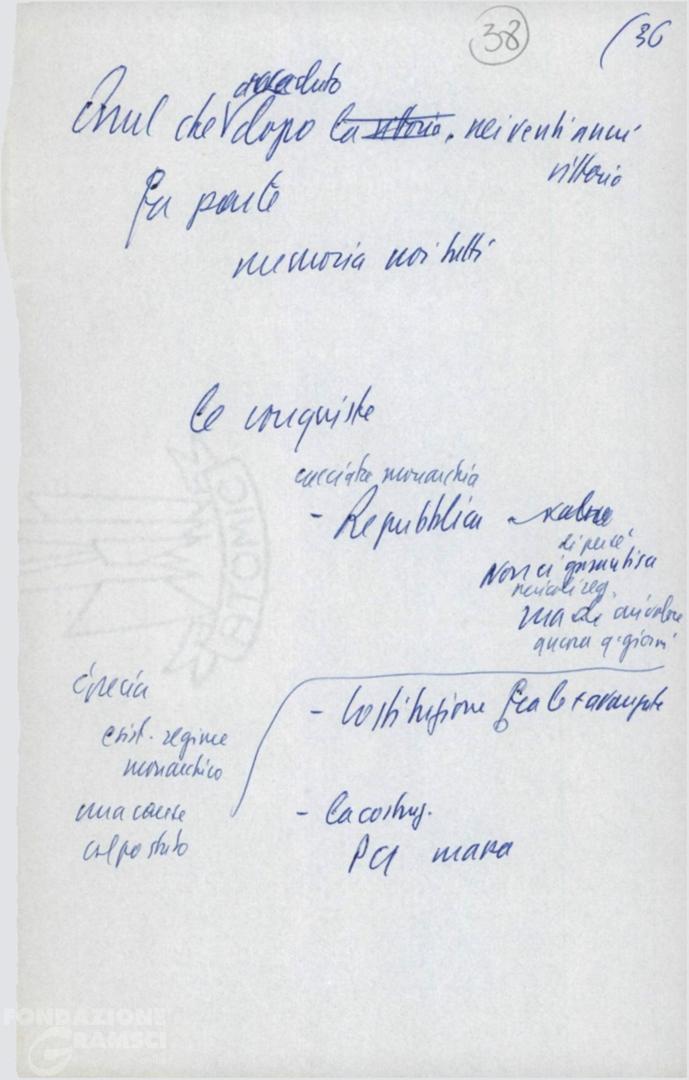 38
(36
accaduto
Quel che dopo la vittoria. nei venti anni
vittoria
fa parte
memoria noi tutti
le conquiste
cacciata monarchia
- Repubblica valore
di per sé
Non ci garantisca
ma di cui valore
ancora q. giorni
Grecia
esist. regime
monarchico
una cause
colpo stato
- Costituzione fra le + avanzate
- La costruz.
PCI massa
ATOMIC
FONDAZIONE
GRAMSCI